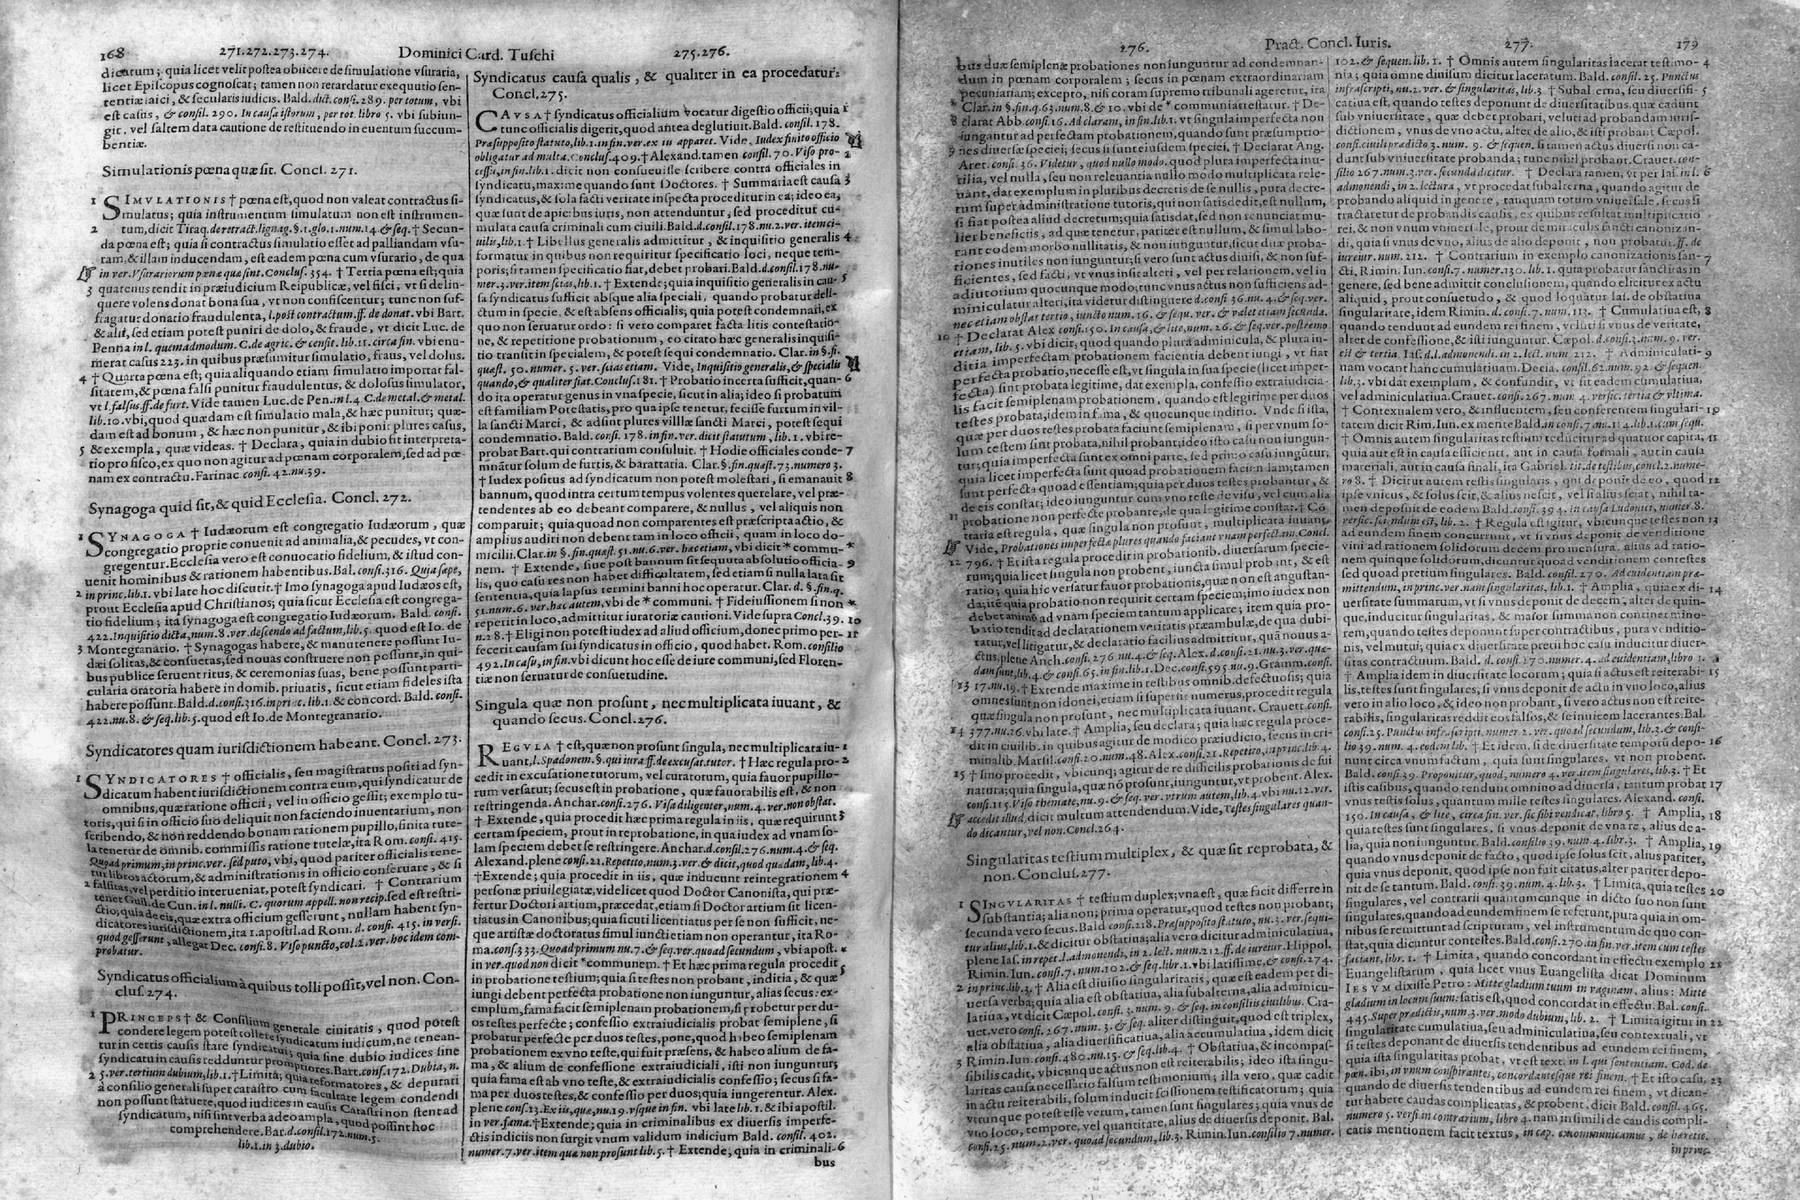 168 271.272.273.274. Dominici Card. Tuschi 275.276.
dicatum; quia licet velit postea obiicere de simulatione vsuraria,
licet Episcopus cognoscat; tamen non retardatur exequutio sen-
tentiæ laici, & secularis iudicis. Bald. dict. consi. 289. per totum, vbi
est casus, & consil. 290. In causa istorum, per tot. libro 5. vbi subiun-
git. vel saltem data cautione de restituendo in euentum succum-
bentiæ.
Simulationis pœna quæ sit. Concl. 271.
1 SIMVLATIONIS † pœna est, quod non valeat contractus si-
mulatus; quia instrumentum simulatum non est instrumen-
2 tum, dicit Tiraq. de retract. lignag. §. 1. glo. 1. num. 14. & seq. † Secun-
da pœna est; quia si contractus simulatio esset ad palliandam vsu-
ram, & illam inducendam, est eadem pœna cum vsurario, de qua
in ver. Vsurariorum pœnæ quæ sint. Conclus. 354. † Tertia pœna est; quia
3 quatenus tendit in præiudicium Reipublicæ, vel fisci, vt si delin-
quere volens donat bona sua, vt non confiscentur; tunc non suf-
fragatur donatio fraudulenta, l. post contractum. ff. de donat. vbi Bart.
& alii, sed etiam potest puniri de dolo, & fraude, vt dicit Luc. de
Penna in l. quemadmodum. C. de agric. & censit. lib. 11. circa fin. vbi enu-
merat casus 223. in quibus præsumitur simulatio, fraus, vel dolus.
4 † Quarta pœna est; quia aliquando etiam simulatio importat fal-
sitatem, & pœna falsi punitur fraudulentus, & dolosus simulator,
vt l. falsus. ff. de furt. Vide tamen Luc. de Pen. in l. 4. C. de metal. & metal.
lib. 10. vbi, quod quædam est simulatio mala, & hæc punitur; quæ-
dam est ad bonum, & hæc non punitur, & ibi ponit plures casus,
5 & exempla, quæ videas. † Declara, quia in dubio sit interpreta-
tio pro fisco, ex quo non agitur ad pœnam corporalem, sed ad pœ-
nam ex contractu. Farinac consi. 42. nu. 39.
Synagoga quid sit, & quid Ecclesia. Concl. 272.
1 SYNAGOGA † Iudæorum est congregatio Iudæorum, quæ
congregatio proprie conuenit ad animalia, & pecudes, vt con-
gregentur. Ecclesia vero est conuocatio fidelium, & istud con-
uenit hominibus & rationem habentibus. Bal. consi. 316. Quia sæpe,
2 in princ. lib. 1. vbi late hoc discutit. † Imo synagoga apud Iudæos est,
prout Ecclesia apud Christianos; quia sicut Ecclesia est congrega-
tio fidelium; ita synagoga est congregatio Iudæorum. Bald. consi.
422. Inquisitio dicta, num. 8. ver. descendo ad factum, lib. 5. quod est Io. de
3 Montegranario. † Synagogas habere, & manutenere possunt Iu-
dæi solitas, & consuetas, sed nouas construere non possunt, in qui-
bus publice seruent ritus, & ceremonias suas, bene possunt parti-
cularia oratoria habere in domib. priuatis, sicut etiam fideles ista
habere possunt. Bald. d. consi. 316. in princ. lib. 1. & concord. Bald. consi.
422. nu. 8. & seq. lib. 5. quod est Io. de Montegranario.
Syndicatores quam iurisdictionem habeant. Concl. 273.
1 SYNDICATORES † officialis, seu magistratus positi ad syn-
dicatum habent iurisdictionem contra eum, qui syndicatur de
omnibus, quæ ratione officii, vel in officio gessit; exemplo tu-
toris, qui si in officio suo deliquit non faciendo inuentarium, non
scribendo, & non reddendo bonam rationem pupillo, finita tute-
la tenetur de omnib. commissis ratione tutelæ, ita Rom. consi. 415.
Quoad primum, in princ. ver. sed puto, vbi, quod pariter officialis tene-
tur libros actorum, & administrationis in officio conseruare, & si
2 falsitas, vel perditio interueniat, potest syndicari. † Contrarium
tenet Guil. de Cun. in l. nulli. C. quorum appell. non recip. sed est restri-
ctio; quia de eis, quæ extra officium gesserunt, nullam habent syn-
dicatores iurisdictionem, ita 1. apostil. ad Rom. d. consi. 415. in versi.
quod gesserunt, allegat Dec. consi. 8. Viso puncto, col. 2. ver. hoc idem com-
probatur.
Syndicatus officialium à quibus tolli possit, vel non. Con-
clus. 274.
1 PRINCEPS † & Consilium generale ciuitatis, quod potest
condere legem potest tollere syndicatum iudicum, ne tenean-
tur in certis causis stare syndicatui; quia sine dubio iudices sine
syndicatu in causis redduntur promptiores. Bart. consi. 172. Dubia, n.
2 5. ver. tertium dubium, lib. 1. † Limita; quia reformatores, & deputati
à consilio generali super catastro cum facultate legem condendi
non possunt statuere, quod iudices in causis Catastri non stent ad
syndicatum, nisi sint verba adeo ampla, quod possint hoc
comprehendere. Bar. d. consi. 172. num. 5.
lib. 1. in 3. dubio.
Syndicatus causa qualis, & qualiter in ea procedatur.
Concl. 275.
CAVSA † syndicatus officialium vocatur digestio officii; quia 1
tunc officialis digerit, quod antea deglutiuit. Bald. consil. 178.
Præsupposito statuto, lib. 1. in fin. ver. ex iis apparet. Vide, Iudex finito officio
obligatur ad multa. Conclus. 409. † Alexand. tamen consil. 70. Viso pro- 2
cessu, in fin. lib. 1. dicit non consueuisse scribere contra officiales in
syndicatu, maxime quando sunt Doctores. † Summaria est causa 3
syndicatus, & sola facti veritate inspecta proceditur in ea; ideo ea,
quæ sunt de apicibus iuris, non attenduntur, sed proceditur cu-
mulata causa criminali cum ciuili. Bald. d. consil. 178. nu. 2. ver. item ci-
uilis, lib. 1. † Libellus generalis admittitur, & inquisitio generalis 4
formatur in quibus non requiritur specificatio loci, neque tem-
poris; si tamen specificatio fiat, debet probari. Bald. d. consil. 178. nu-
mer. 3. ver. item scias, lib. 1. † Extende; quia inquisitio generalis in cau- 5
sa syndicatus sufficit absque alia speciali, quando probatur deli-
ctum in specie, & est absens officialis, quia potest condemnari, ex
quo non seruatur ordo: si vero comparet facta litis contestatio-
ne, & repetitione probationum, eo citato hæc generalis inquisi-
tio transit in specialem, & potest sequi condemnatio. Clar. in §. fi.
quæst. 50. numer. 5. ver. scias etiam. Vide, Inquisitio generalis, & specialis
quando, & qualiter fiat. Conclus. 181. † Probatio incerta sufficit, quan- 6
do ita operatur genus in vna specie, sicut in alia; ideo si probatum
est familiam Potestatis, pro qua ipse tenetur, fecisse furtum in vil-
la sancti Marci, & adsint plures villæ sancti Marci, potest sequi
condemnatio. Bald. consi. 178. in fin. ver. dicit statutum, lib. 1. vbi re-
probat Bart. qui contrarium consuluit. † Hodie officiales conde- 7
mnātur solum de furtis, & barattaria. Clar. §. fin. quæst. 73. numero 3.
† Iudex positus ad syndicatum non potest molestari, si emanauit 8
bannum, quod intra certum tempus volentes querelare, vel præ-
tendentes ab eo debeant comparere, & nullus, vel aliquis non
comparuit; quia quoad non comparentes est præscripta actio, &
amplius audiri non debent tam in loco officii, quam in loco do-
micilii. Clar. in §. fin. quæst. 51. nu. 6. ver. hac etiam, vbi dicit * commu- *
nem. † Extende, siue post bannum sit sequuta absolutio officia- 9
lis, quo casu res non habet difficultatem, sed etiam si nulla lata sit
sententia, quia lapsus termini banni hoc operatur. Clar. d. §. fin. q.
51. num. 6. ver. hac autem, vbi de * communi. † Fideiussionem si non *
reperit in loco, admittitur iuratoriæ cautioni. Vide supra Concl. 39. 10
n. 28. † Eligi non potest iudex ad aliud officium, donec primo per- 11
fecerit causam sui syndicatus in officio, quod habet. Rom. consilio
492. In casu, in fin. vbi dicunt hoc esse de iure communi, sed Floren-
tiæ non seruatur de consuetudine.
Singula quæ non prosunt, nec multiplicata iuuant, &
quando secus. Concl. 276.
REGVLA † est, quæ non prosunt singula, nec multiplicata iu- 1
uant, l. Spadonem. §. qui iura ff. de excusat. tutor. † Hæc regula pro- 2
cedit in excusatione tutorum, vel curatorum, quia fauor pupillo-
rum versatur; secus est in probatione, quæ fauorabilis est, & non
restringenda. Anchar. consi. 276. Visa diligenter, num. 4. ver. non obstat.
† Extende, quia procedit hæc prima regula in iis, quæ requirunt 3
certam speciem, prout in reprobatione, in qua iudex ad vnam so-
lam speciem debet se restringere. Anchar. d. consil. 276. num. 4. & seq.
Alexand. plene consi. 21. Repetito, num. 3. ver. & dicit, quod quædam, lib. 4.
† Extende; quia procedit in iis, quæ inducunt reintegrationem 4
personæ priuilegiatæ, videlicet quod Doctor Canonista, qui præ-
fertur Doctori artium, præcedat, etiam si Doctor artium sit licen-
tiatus in Canonibus; quia sicuti licentiatus per se non sufficit, ne-
que artistæ doctoratus simul iuncti etiam non operantur, ita Ro-
ma. consi. 333. Quoad primum nu. 7. & seq. ver. quoad secundum, vbi apost. *
in ver. quod non dicit * communem. † Et hæc prima regula procedit
in probatione testium; quia si testes non probant, inditia, & quæ 5
iungi debent perfecta probatione non iunguntur, alias secus: ex-
emplum, fama facit semiplenam probationem, si probetur per du-
os testes perfecte; confessio extraiudicialis probat semiplene, si
probatur perfecte per duos testes, pone, quod habeo semiplenam
probationem ex vno teste, qui fuit præsens, & habeo alium de fa-
ma, & alium de confessione extraiudiciali, isti non iunguntur;
quia fama est ab vno teste, & extraiudicialis confessio; secus si fa-
ma per duos testes, & confessio per duos; quia iungerentur. Alex.
plene consi. 13. Ex iis, quæ, nu. 19. vsque in fin. vbi late lib. 1. & ibi apostil.
in ver. fama. † Extende; quia in criminalibus ex diuersis imperfe-
ctis indiciis non surgit vnum validum indicium Bald. consil. 402.
numer. 7. ver. item quæ non prosunt lib. 5. † Extende, quia in criminali- 6
bus
276. Pract. Concl. Iuris. 277. 179
bus duæ semiplenæ probationes non iunguntur ad condemnan-
dum in pœnam corporalem; secus in pœnam extraordinariam
pecuniariam; excepto, nisi coram supremo tribunali ageretur, ita
Clar. in §. fin. q. 63. num. 8. & 10. vbi de * communi attestatur. † De-
8 clarat Abb. consi. 16. Ad claram, in fin. lib. 1. vt singula imperfecta non
iungantur ad perfectam probationem, quando sunt præsumptio-
9 nes diuersæ speciei; secus si sunt eiusdem speciei. † Declarat Ang.
Aret. consi. 36. Videtur, quod nullo modo. quod plura imperfecta inu-
tilia, vel nulla, seu non releuantia nullo modo multiplicata rele-
uant, dat exemplum in pluribus decretis de se nullis, puta decre-
tum super administratione tutoris, qui non satisdedit, est nullum,
si fiat postea aliud decretum; quia satisdat, sed non renunciat mu-
lier beneficiis, ad quæ tenetur, pariter est nullum, & simul labo-
rant eodem morbo nullitatis, & non iunguntur, sicut duæ proba-
tiones inutiles non iunguntur; si vero sunt actus diuisi, & non suf-
ficientes, sed facti, vt vnus insit alteri, vel per relationem, vel in
adiutorium quocunque modo, tunc vnus actus non sufficiens ad-
miniculatur alteri, ita videtur distinguere d. consi 36. nu. 4. & seq. ver.
nec etiam obstat tertio, iuncto num. 16. & sequ. ver. & valet etiam secunda.
10 † Declarat Alex consi. 150. In causa, & lite, num. 26. & seq. ver. postremo
etiam, lib. 5. vbi dicit, quod quando plura adminicula, & plura in-
ditia imperfectam probationem facientia debent iungi, vt fiat
perfecta probatio, necesse est, vt singula in sua specie (licet imper-
fecta) sint probata legitime, dat exempla, confessio extraiudicia-
lis facit semiplenam probationem, quando est legitime per duos
testes probata, idem in fama, & quocunque inditio. Vnde si ista,
quæ per duos testes probata faciunt semiplenam, si per vnum so-
lum testem sint probata, nihil probant; ideo isto casu non iungun-
tur; quia imperfecta sunt ex omni parte, sed primo casu iungūtur,
quia licet imperfecta sint quoad probationem faciendam; tamen
sunt perfecta quoad essentiam; quia per duos testes probatur, &
de eis constat; ideo iunguntur cum vno teste de visu, vel cum alia
probatione non perfecte probante, de qua legitime constat. † Cō
11 traria est regula, quæ singula non prosunt, multiplicata iuuant,
Vide, Probationes imperfectæ plures quando faciant vnam perfectam. Concl.
12 796. † Et ista regula procedit in probationib. diuersarum specie-
rum; quia licet singula non probent, iuncta simul probant, & est
ratio; quia hic versatur fauor probationis, quæ non est angustan-
da; ite quia probatio non requirit certam speciem; imo iudex non
debet animū ad speciem tantum applicare; item quia pro-
batio tendit ad declarationem veritatis præambulæ, de qua dubi-
tatur, vel litigatur, & declaratio facilius admittitur, quā nouus a-
ctus, plene Anch. consi. 276 nu. 4. & seq. Alex. d. consi. 21. nu. 3. ver. quæ-
dam sunt, & consi. 65. in fin. lib. 1. Dec. consi. 595 nu. 9. Gramm. consi.
13 17. nu. 19. † Extende maxime in testibus omnib. defectuosis; quia
omnes sunt non idonei, etiam si superet numerus, procedit regula
quæ singula non prosunt, nec multiplicata iuuant. Crauett. consi.
14 377. nu. 26. vbi late. † Amplia, seu declara; quia hæc regula proce-
dit in ciuilib. in quibus agitur de modico præiudicio, secus in cri-
minalib. Marsil. consi. 20. num. 48. Alex. consi. 21. Repetito, in princ. lib. 4.
15 † Imo procedit, vbicunq; agitur de re difficilis probationis de sui
natura; quia singula, quæ nō prosunt, iunguntur, vt probent. Alex.
consi. 115. Viso themate, nu. 9. & seq. ver. vtrum autem, lib. 4. vbi nu. 12. ver.
accedit illud, dicit multum attendendum. Vide, Testes singulares quan-
do dicantur, vel non. Concl. 264.
Singularitas testium multiplex, & quæ sit reprobata, &
non. Conclus. 277.
1 SINGVLARITAS † testium duplex; vna est, quæ facit differre in
substantia; alia non; prima operatur, quod testes non probant;
secunda vero secus. Bald. consi. 218. Præsupposito statuto, nu. 3. ver. sequi-
tur alius, lib. 1. & dicitur obstatiua; alia vero dicitur adminiculatiua,
plene Ias. in repet. l. admonendi, in 2. lect. num. 212. ff. de iureiur. Hippol.
Rimin. Iun. consi. 7. num. 102. & seq. libr. 1. vbi latissime, & consi. 274.
2 in princ. lib. 3. † Alia est diuisio singularitatis, quæ est eadem per di-
uersa verba; quia alia est obstatiua, alia subalterna, alia adminicu-
latiua, vt dicit Cæpol. consi. 3. num. 9. & seq. in consiliis ciuilibus. Cra-
uet. vero consi. 267. num. 3. & seq. aliter distinguit, quod est triplex,
alia obstatiua, alia diuersificatiua, alia accumulatiua, idem dicit
3 Rimin. Iun. consi. 480. nu. 15. & seq. lib. 4. † Obstatiua, & incompas-
sibilis cadit, vbicunque actus non est reiterabilis; ideo ista singu-
laritas causa necessario falsum testimonium; illa vero, quæ cadit
in actu reiterabili, solum inducit scissionem testificatorum; quia
vtrunque potest esse verum, tamen sunt singulares; quia vnus de
vno loco, tempore, vel quantitate, alius de diuersis deponit. Bal.
consi. 25. num. 2. ver. quoad secundum, lib. 3. Rimin. Iun. consilio 7. numer.
102. & sequen. lib. 1. † Omnis autem singularitas lacerat testimo- 4
nia; quia omne diuisum dicitur laceratum. Bald. consil. 25. Punctus
infrascripti, nu. 2. ver. & singularitas, lib. 3. † Subalterna, seu diuersifi- 5
catiua est, quando testes deponunt de diuersitatibus quæ cadunt
sub vniuersitate, quæ debet probari, veluti ad probandam iuris-
dictionem, vnus de vno actu, alter de alio, & isti probant Cæpol.
consi. ciuili prædicto 3. num. 9. & sequen. si tamen actus diuersi non ca-
dunt sub vniuersitate probanda; tunc nihil probant. Crauet. con-
silio 267. num. 3. ver. secunda dicitur. † Declara tamen, vt per Ias. in l. 6
admonendi, in 2. lectura, vt procedat subalterna, quando agitur de
probando aliquid in genere, tanquam totum vniuersale, secus si
tractaretur de probandis causis, ex quibus resultat multiplicatio
rei, & non vnum vniuersale, prout de miraculis sancti canonizan-
di, quia si vnus de vno, alius de alio deponit, non probatur. ff. de
iureiur. num. 212. † Contrarium in exemplo canonizationis san- 7
cti, Rimin. Iun. consi. 7. numer. 130. lib. 1. quia probatur sanctitas in
genere, sed bene admittit conclusionem, quando elicitur ex actu
aliquid, prout consuetudo, & quod loquatur Ias. de obstatiua
singularitate, idem Rimin. d. consi. 7. num. 113. † Cumulatiua est, 8
quando tendunt ad eundem rei finem, veluti si vnus de veritate,
alter de confessione, & isti iunguntur. Cæpol. d. consi. 3. num. 9. ver.
est & tertia Ias. d. l. admonendi. in 2. lect. num 212. † Adminiculati- 9
uam vocant hanc cumulatiuam. Decia. consil. 62. num. 92. & sequen.
lib. 3. vbi dat exemplum, & confundit, vt sit eadem cumulatiua,
vel adminiculatiua. Crauet. consi. 267. num. 4. versic. tertia & vltima.
† Contextualem vero, & influentem, seu conferentem singulari- 10
tatem dicit Rim. Iun. ex mente Bald. in consi. 7. nu. 114. lib. 1. cum sequ.
† Omnis autem singularitas testium reducitur ad quatuor capita, 11
quia aut est in causa efficienti, aut in causa formali, aut in causa
materiali, aut in causa finali, ita Gabriel. tit. de testibus, concl. 2. nume-
ro 8. † Dicitur autem testis singularis, qui deponit de eo, quod 12
ipse vnicus, & solus scit, & alius nescit, vel si alius sciat, nihil ta-
men deposuit de eodem Bald. consi. 394. in causa Ludouici, numer. 8.
versic. secundum est, lib. 2. † Regula est igitur, vbicunque testes non 13
ad eundem finem concurrunt, vt si vnus deponit de venditione
vini ad rationem solidorum decem pro mensura, alius ad ratio-
nem quinque solidorum, dicuntur quoad venditionem contestes
sed quoad pretium singulares. Bald. consil. 279. Ad euidentiam præ-
mittendum, in princ. ver. nam singularitas, lib. 1. † Amplia, quia ex di- 14
uersitate summarum, vt si vnus deponit de decem, alter de quin-
que, inducitur singularitas, & maior summa non continet mino-
rem, quando testes deponunt super contractibus, puta venditio-
nis, vel mutui; quia ex diuersitate pretii hoc casu inducitur diuer-
sitas contractuum. Bald. d. consi. 270. numer. 4. ad euidentiam, libro 1.
† Amplia idem in diuersitate locorum; quia si actus est reiterabi- 15
lis, testes sunt singulares, si vnus deponit de actu in vno loco, alius
vero in alio loco, & ideo non probant, si vero actus non est reite-
rabilis, singularitas reddit eos falsos, & se inuicem lacerantes. Bal.
consi. 25. Punctus infrascripti, numer. 2. ver. quoad secundum, lib. 3. & consi-
lio 39. num. 4. eodem lib. † Et idem, si de diuersitate temporū depo- 16
nunt circa vnum factum, quia sunt singulares, vt non probent.
Bald. consi. 39. Proponitur, quod, numero 4. ver. item singulares, lib. 3. † Et
istis casibus, quando tendunt omnino ad diuersa, tantum probat 17
vnus testis solus, quantum mille testes singulares. Alexand. consi.
150. In causa, & lite, circa fin. ver. sic sibi vendicat, libro 5. † Amplia, 18
quia testes sunt singulares, si vnus deponit de vna re, alius de a-
lia, quia non iunguntur. Bald. consilio 39. num. 4. libr. 3. † Amplia, 19
quando vnus deponit de facto, quod ipse solus scit, alius pariter,
quia vnus deponit, quod ipse non fuit citatus, alter pariter depo-
nit de se tantum. Bald. consi. 39. num. 4. lib. 3. † Limita, quia testes 20
singulares, vel contrarii quantumcunque in dicto suo non sunt
singulares, quando ad eundem finem se referunt, puta quia in om-
nibus se remittunt ad scripturam, vel instrumentum de quo con-
stat, quia dicuntur contestes. Bald. consi. 270. in fin. ver. item cum testes
faciant, libr. 1. † Limita, quando concordant in effectu exemplo 21
Euangelistarum, quia licet vnus Euangelista dicat Dominum
IESVM dixisse Petro: Mitte gladium tuum in vaginam, alius: Mitte
gladium in locum suum: satis est, quod concordat in effectu. Bal. consi.
445. Super prædictis, num. 3. ver. modo dubium, lib. 2. † Limita igitur in 22
singularitate cumulatiua, seu adminiculatiua, seu contextuali, vt
si testes deponant de diuersis tendentibus ad eundem rei finem,
quia ista singularitas probat, vt est text. in l. qui sententiam. Cod. de
pœn. ibi, in vnum conspirantes, concordantesque rei finem. † Et isto casu, 23
quando de diuersis tendentibus ad eundem rei finem, vt dican-
tur habere caudas complicatas, & probent, dicit Bald. consil. 465.
numero 5. versi. in contrarium, libro 4. nam in simili de caudis compli-
catis mentionem facit textus, in cap. excommunicamus, de hæretic.
in princ.